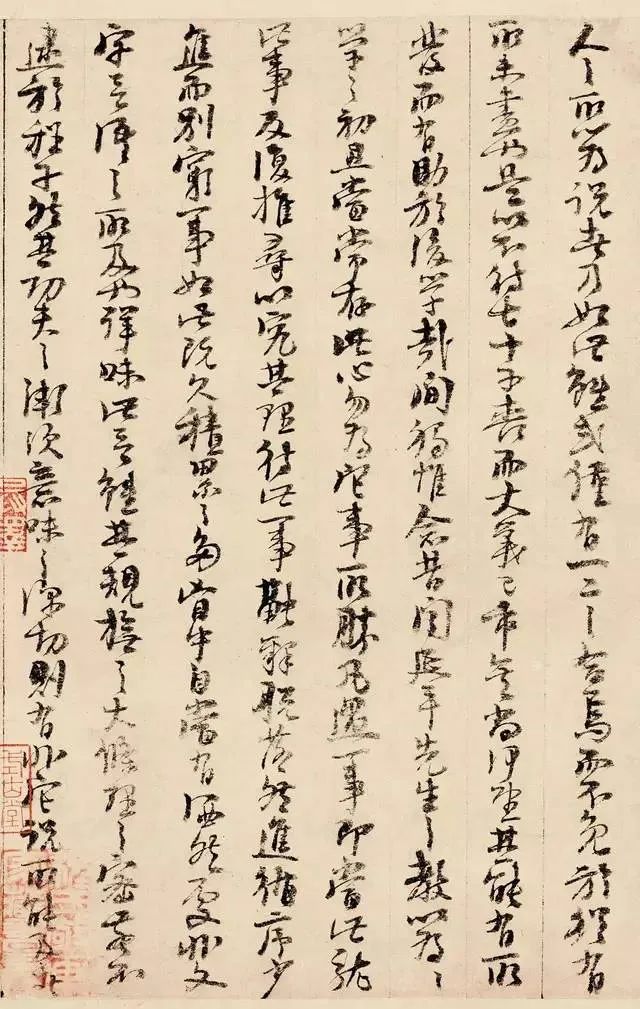 人之所以為說者乃如此雖或僅有一二之合焉而不免於猶有
所未盡也是以不待七十子喪而大義已乖矣尚何望其能有所
發而有助於後學哉間獨惟念昔聞延平先生之教以為〻
學之初且當常存此心勿為它事所勝凡遇一事即當此就
此事反復推尋以究其理待此一事融釋脫落然進循序少
進而別窮一事如此既久積累之多胷中自當有洒然處非文
字言語之所及也詳味此言雖其規模之大條理之密若不
逮於程子然其功夫之漸次意味之深切則有非它說所能及者